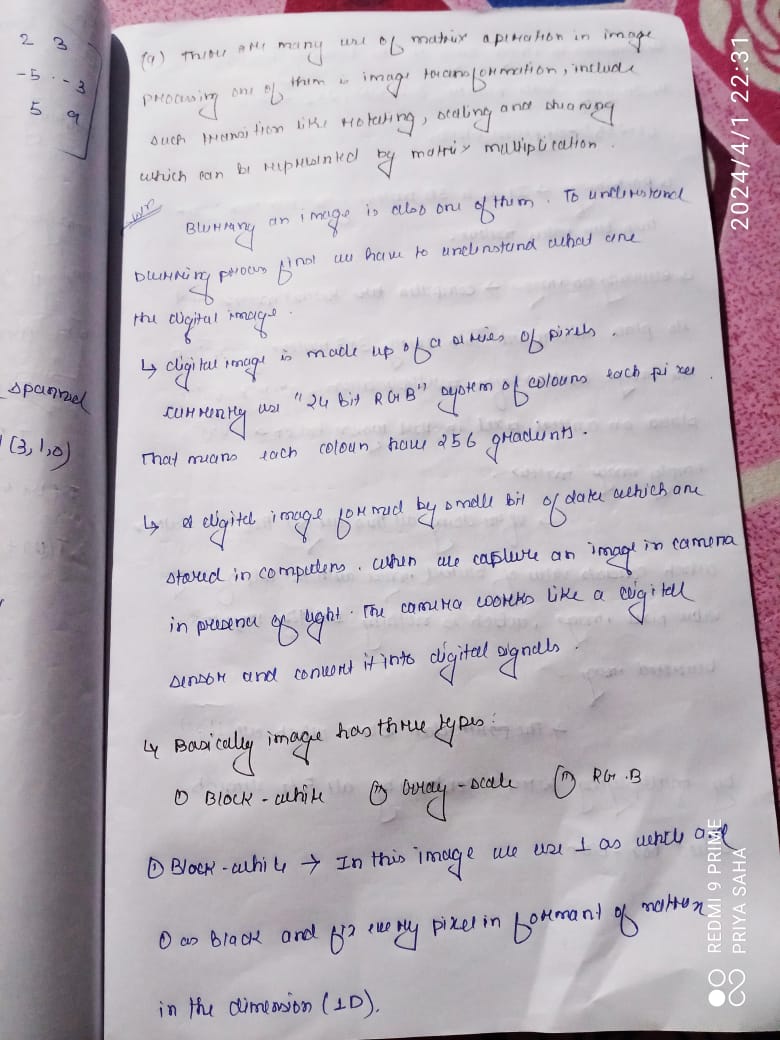 2 3
-5 . -3
5 9
spanned
(3,1,0)
(a) There are many use of matrix operation in image
processing one of them is image transformation, include
such transition like rotating, scaling and shearing
which can be represented by matrix multiplication.
Blurring an image is also one of them. To understand
blurring process first we have to understand what are
the digital image.
↳ digital image is made up of a series of pixels.
currently use "24 bit RGB" system of colours each pixel.
That means each colour have 256 gradients.
↳ a digital image formed by small bit of data which are
stored in computers. when we capture an image in camera
in presence of light. The camera works like a digital
sensor and convert it into digital signals.
↳ Basically image has three types:
① Block-white ② Gray-scale ③ RG.B
① Block-white → In this image we use 1 as white and
0 as Black and fix every pixel in formant of matrix
in the dimension (1D).
2024/4/1 22:31
REDMI 9 PRIME
PRIYA SAHA